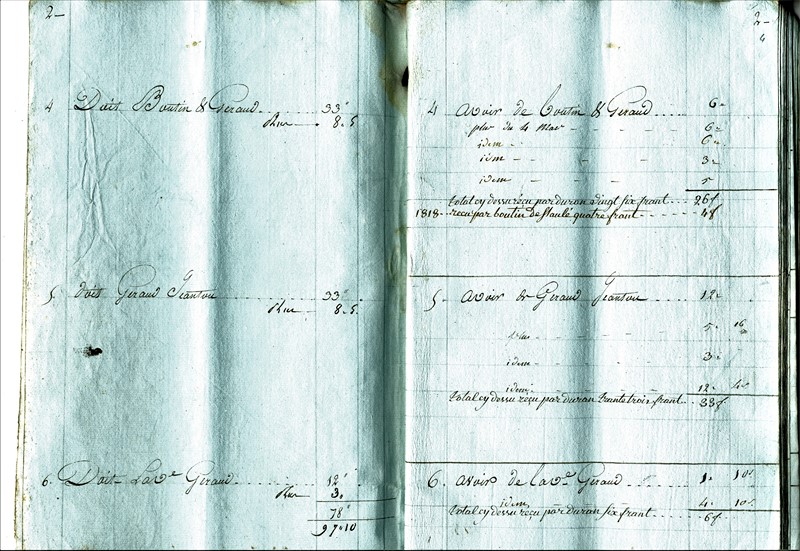 2
4 Doit Boutin & Geraud 33"
Plus 8 5
5 doit Geraud Jeantou 33"
Plus 8 5
6 Doit La Ve Geraud 12"
Plus 3
78"
97 10
2
4 avoir de boutin & Geraud 6
plus du 4 Mar 6
idem 6
idem 3
idem 5
total cy dessu reçu par duran vingt six frant 26f
1818 reçu par boutin de quatre frant 4f
5 avoir de Geraud Jeantou 12
plus 5 16
idem 3
idem 12 4
total cy dessu reçu par duran trante trois frant 33f
6 avoir de la Ve Geraud 1 10
idem 4 10
total cy dessu reçu par duran six frant 6f